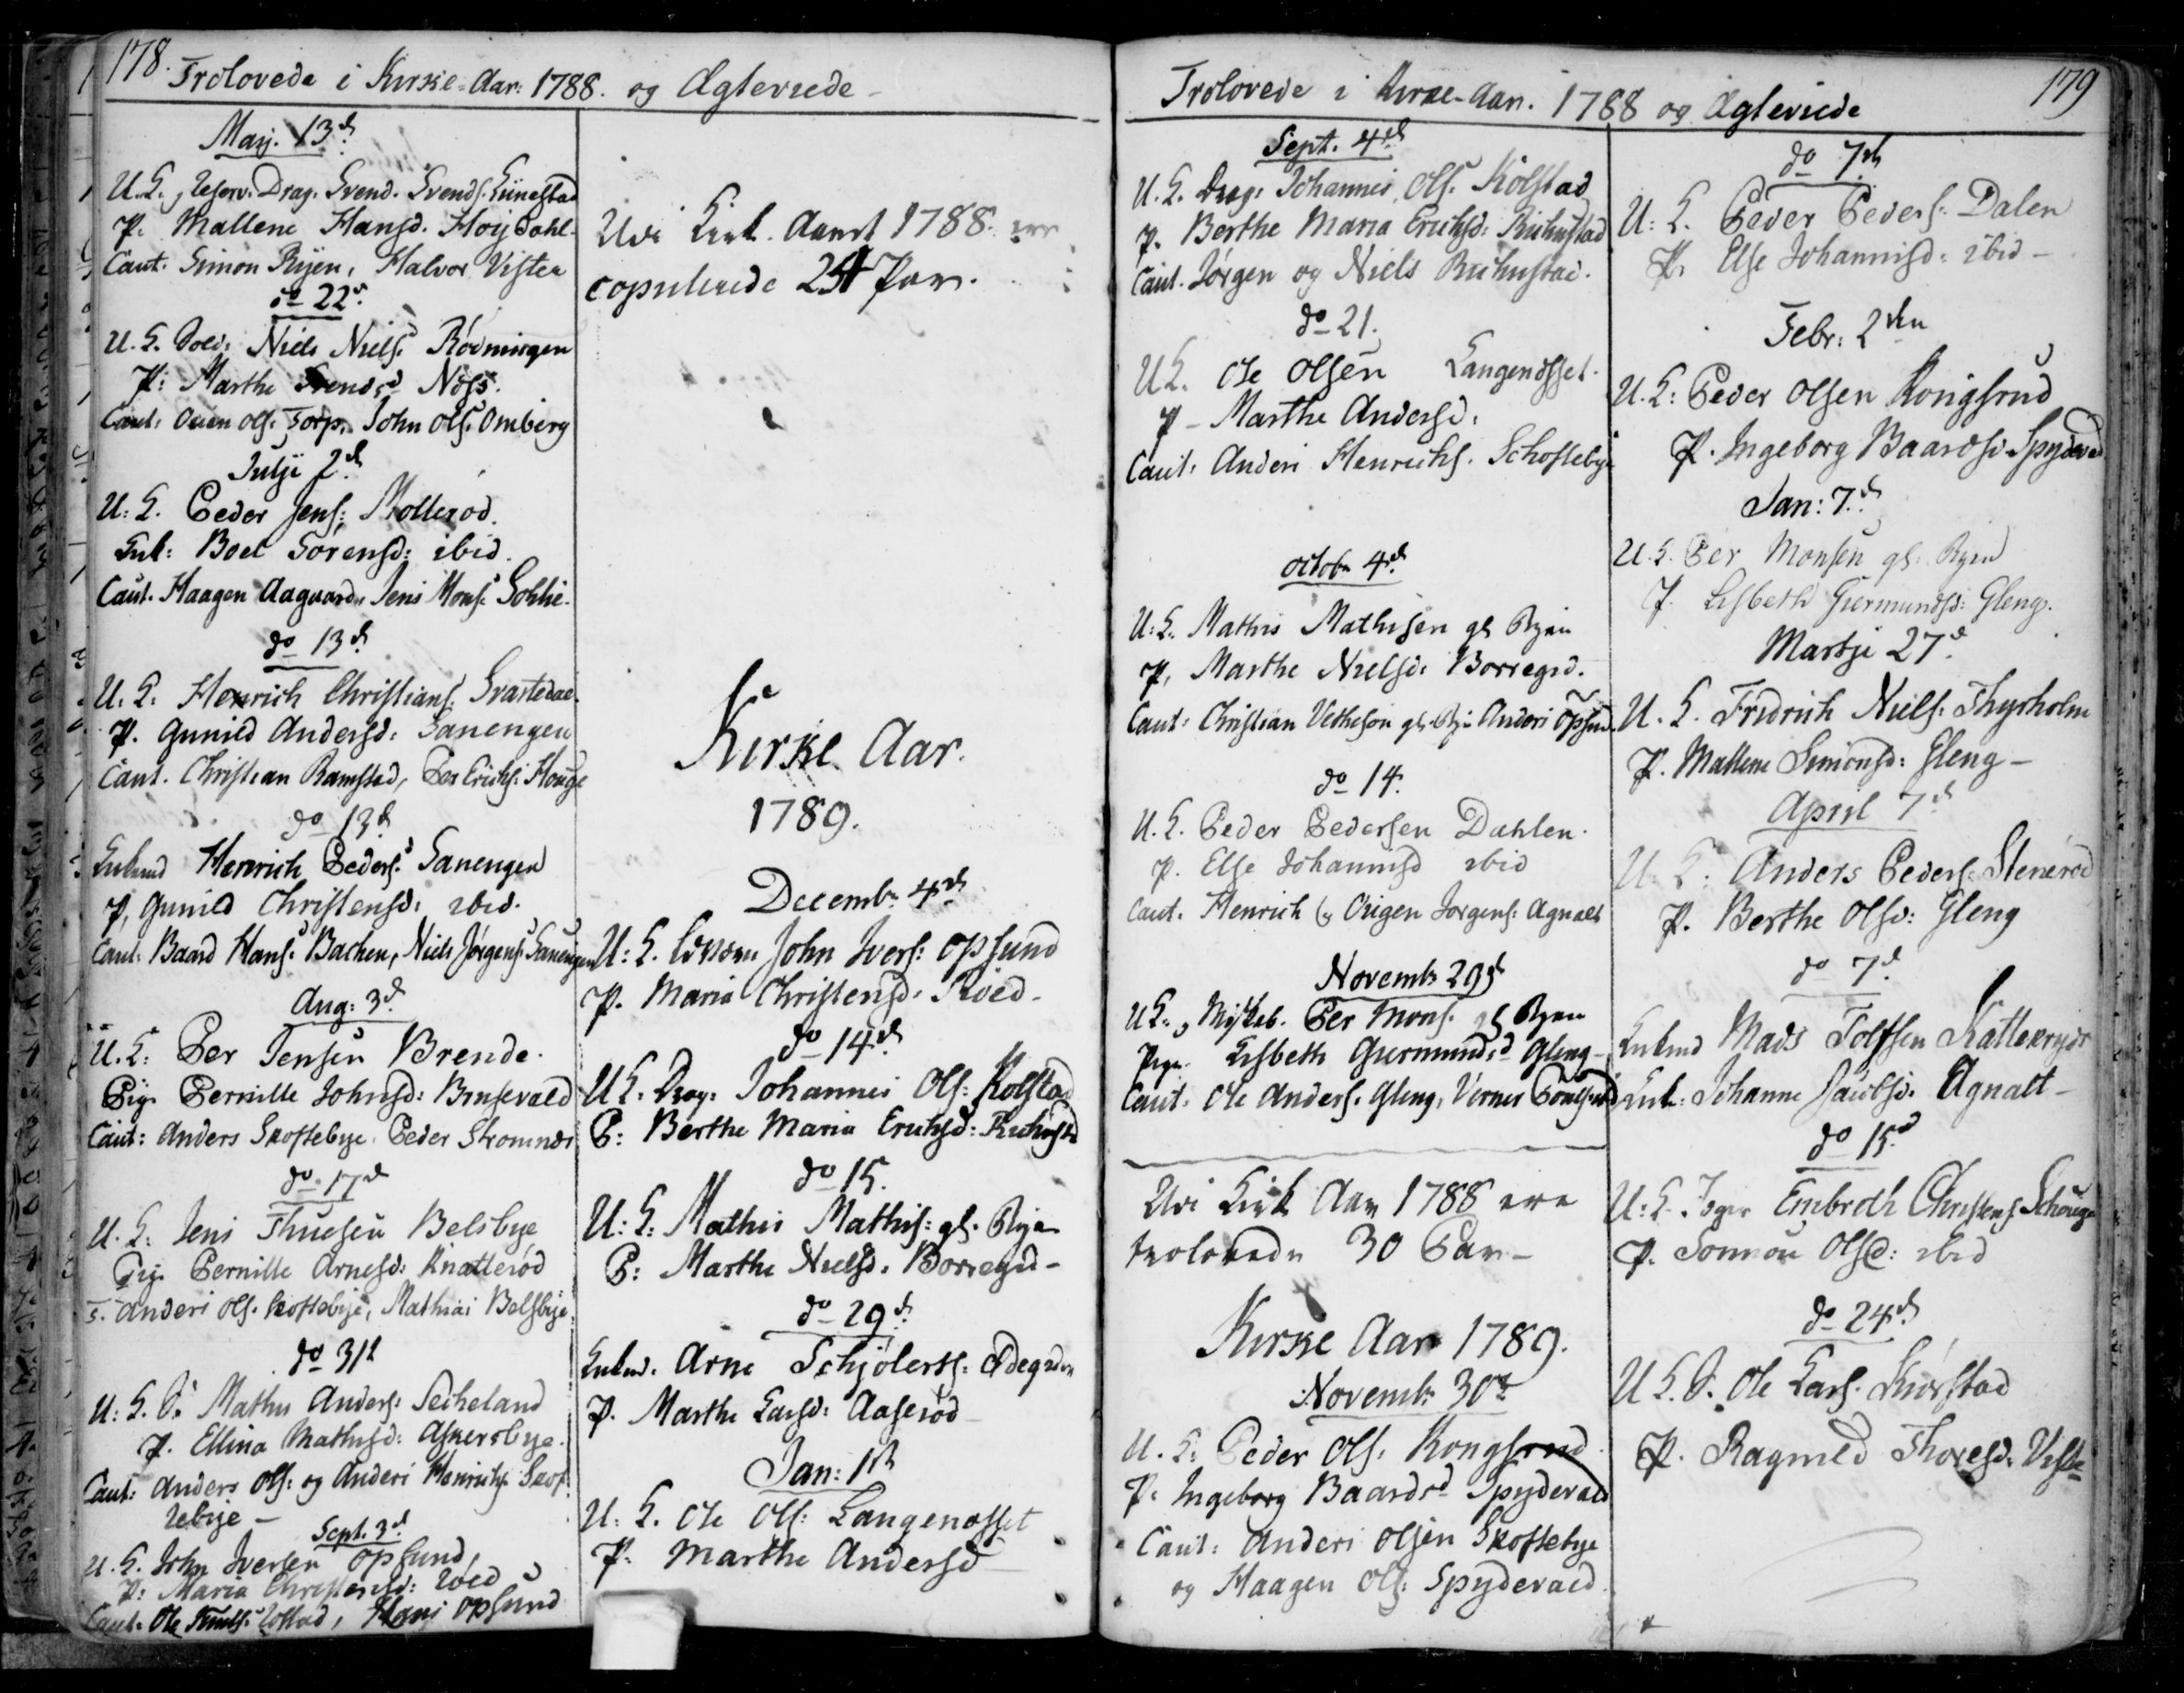 178.
Trolovede i Kirke-Aar: 1788. og Ægteviede
Maij. 13d
U.K. Reserv. Drag. Svend. Svends.
P. Mallene Hansd. Høijdahl
Caut. Simon Rijen, Halvor Visten
do 22d
U.K. Sold: Niels Niels. Rødningen
P: Marthe Svendsd Næss.
Caut: Ols. Torp, John Ols. Omberg
Julji 2d
U:K. Peder Jens: Mollerød.
Enk: Boel Sørensd: ibid.
Caut. Haagen Aagaard, Jens Mons.
do 13d
U.K. Henrich Christians. Svartedal
P. Gunild Andersd: Sanengen
Caut. Christian Ramstad, Per Erichs: Houge
do 13d
Enkmd Henrich Peders. Sanengen
P, Gunild Christensd: ibid.
Caut: Baard Hans. Bachen, Niels Jørgens. Sanengen
Aug: 3d
U.K: Per Jensen Brende.
Pige Pernille Johnsd:
Caut: Anders Skoftebye. Peder Stromnes
do 17d
U.K: Jens Thuesen Belsbye
Pig. Pernille Arnesd: Knatterød
Anders Ols. Skoftebye, Mathias Belsbye.
do 31t
U:K. S. Mathis Anders:
P. Ellina Mathisd: Askersbye.
Caut: Anders Ols: og Anders Henrichs. Skof-
tebije
Sept. 3d
U.K. John Iversen Opsund,
P: Maria Christensd: Roed
Caut. Ole Hans Opsund
Udi Kirk. Aaret 1788. ere
copulerede 24 Par.
Kirke Aar.
1789.
Decembr. 4d
U:K. John Ivers: Opsund
P. Maria Christensd: Roed
do 14d
U.K. Drag. Johannes Ols: Kolstad
P: Berthe Maria Erichsd:
do 15.
U:K: Mathis Mathis: gl. Ryen
P: Marthe Nielsd. Borregrd
do 29d
Enkmd. Arne Schjølers:
P. Marthe Larsd: Aaserød
Jan: 1st
U:K. Ole Ols: Langenæsset
P. Marthe Andersd
179
Trolovede i Kirke-Aar. 1788 og Ægteviede
Sept. 4d
U.K. Drag: Johannes Ols. Kolstad
P. Berthe Maria Erichsd:
Caut. Jørgen og Niels
do 21.
U.K. Ole Olsen Langenæsset.
P Marthe Andersd:
Caut: Anders Henrichs. Schoftebye
Octobr 4d
U:K. Mathis Mathisen gl Ryen
P, Marthe Nielsd: Borregrd.
Caut: Christian gl. Ryen Anders Opsund
do 14.
U.K. Peder Pedersen Dahlen.
P. Else Johannisd ibid
Caut. Henrich og Jørgens: Agnalt
Novembr 29d
U.K. Per Mons. gl Ryen
Pige. Lisbeth Giermundsd Gleng
Caut: Ole Anders. Gleng, Verner
Udi Kirk Aar 1788 ere
trolovede 30 Par
Kirke Aar 1789.
Novembr. 30d
U.K: Peder Ols. Kongsrud
P: Ingeborg Baardsd Spydevald
Caut: Anders Olsen Skoftebye
og Haagen Ols: Spydevald.
do 7d
U:K. Peder Peders: Dalen
P. Else Johannisd: ibid
Febr: 2den
U.K: Peder Olsen Kongsrud
P. Ingeborg Baardsd Spydevald
Jan: 7d
U.K. Per Monsen gl. Ryen
P. Lisbeth Giermundsd: Gleng.
Martji 27d
U.K. Fridrich Niels: Thyrholm
P. Mallene Simonsd: Gleng
April 7d
U.K: Anders Peders: Stenerød
P. Berthe Olsd: Gleng
do 7d
Enkmd Mads Tolfsen Katterryds
Enk: Johanne Jacobsd. Agnalt
do 15d
U:K. Embreth Christens.
P. Olsd: ibid
do 24d
U.K.S. Ole Lars.
P. Ragnild Thoresd.